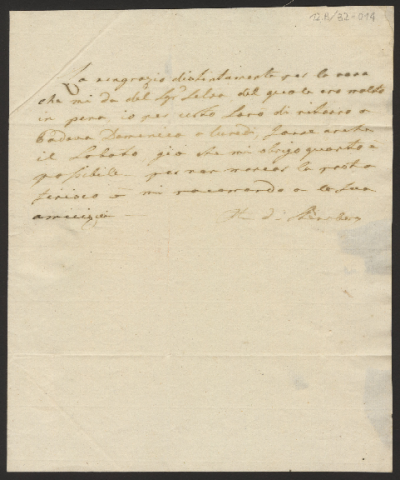 12.B/82-019
La ringrazio distintamente per la nova
che mi da del Sig.r Selva, del quale ero molto
in pena, io per certo sarò di ritorno a
Padova Domenica o lunedì, forse anche
il Sabato, già che mi sbrigo quanto è
possibile per non la posta
finisco e mi racomando a la sua
amicizia